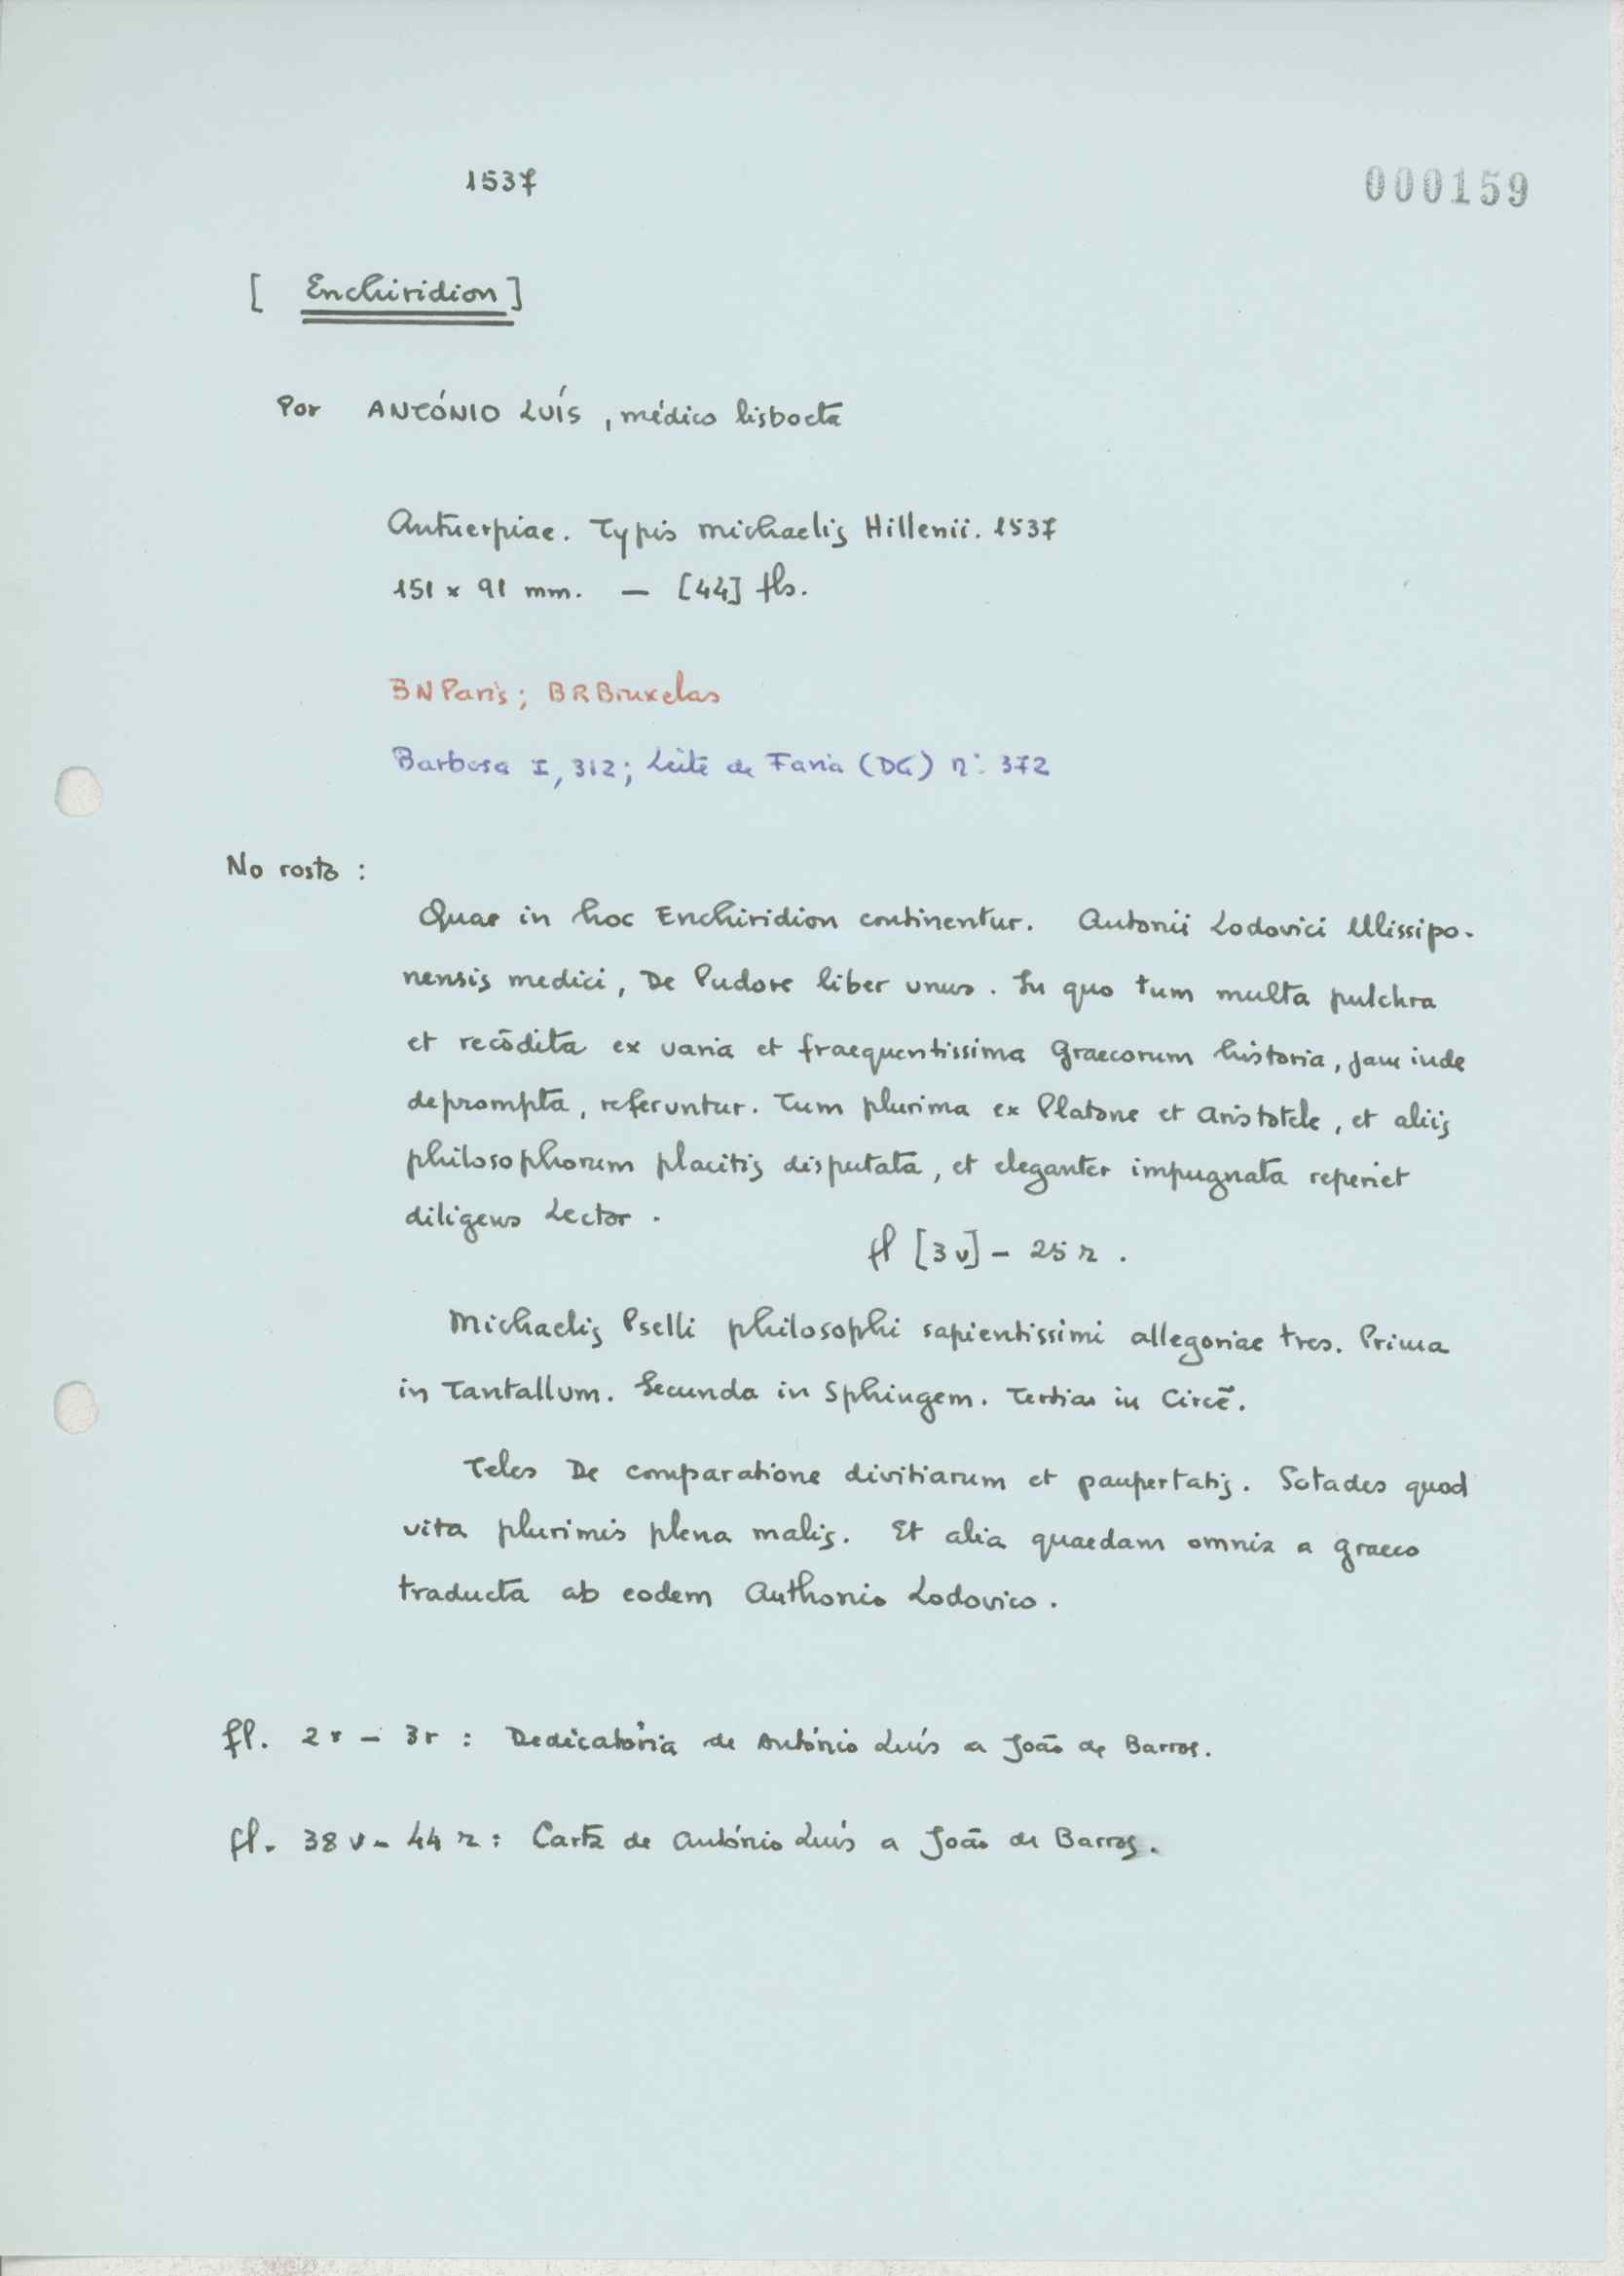 1537
000159
[ Enchiridion ]
Por ANTÓNIO LUÍS, médico lisboeta
Antuerpiae. Typis Michaelis Hillenii. 1537
151 x 91 mm. — [44] fls.
BN Paris; BR Bruxelas
Barbosa I, 312; Leite de Faria (DG) nº 372
No rosto :
Quae in hoc Enchiridion continentur. Antonii Lodovici Ulissipo-
nensis medici, De Pudore liber unus. In quo tum multa pulchra
et recōdita ex varia et fraequentissima Graecorum historia, jam inde
deprompta, referuntur. Tum plurima ex Platone et Aristotele, et aliis
philosophorum placitis disputata, et eleganter impugnata reperiet
diligens Lector.
fl [3v] - 25 r.
Michaelis Pselli philosophi sapientissimi allegoriae tres. Prima
in Tantallum. Secunda in Sphingem. Tertias in Circē.
Teles De comparatione divitiarum et paupertatis. Sotades quod
vita plurimis plena malis. Et alia quaedam omnia a graeco
traducta ab eodem Anthonio Lodovico.
fl. 2r - 3r : Dedicatória de António Luís a João de Barros.
fl. 38 v - 44 r : Carta de António Luís a João de Barros.